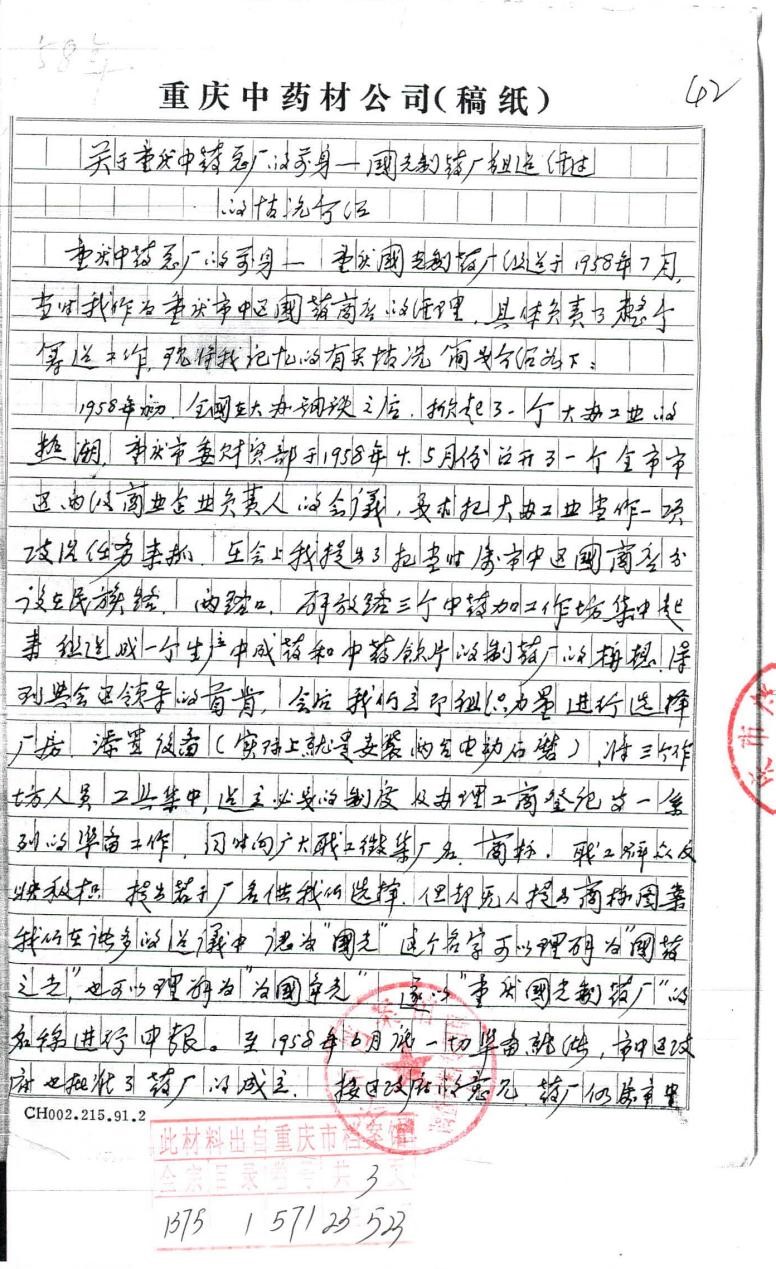 58年
重庆中药材公司(稿纸)
42
关于重庆中药总厂的前身—國光制药厂组建经过
的情况介绍
重庆中药总厂的前身— 重庆國光制药厂组建于1958年7月,
当时我作为重庆市中区國药商店的经理,具体负责了整个
筹建工作,现将我记忆的有关情况简要介绍如下:
1958年初,全國在大办钢铁之后,掀起了一个大办工业的
热潮,重庆市委财贸部于1958年4.5月份召开了一个全市市
区两级商业企业负责人的会議,要求把大办工业当作一项
政治任务来抓。在会上我提出了把当时属市中区國商店分
设在民族路、两路口、解放路三个中药加工作坊集中起
来组建成一个生产中成药和中药饮片的制药厂的构想,得
到與会区领导的首肯,会后我们立即组织力量进行选择
厂房、添置设备(实际上就是安装两台电动石磨),将三个作
坊人员工具集中,建立必要的制度及办理工商登记等一系
列的準备工作,同时向广大职工徵集厂名、商标,职工群众反
映积极 提出若干厂名供我们选择,但却无人提出商标图案
我们在许多的建議中 认为"國光"这个名字可以理解为"國药
之光",也可以理解为"为國争光" 遂以"重庆國光制药厂"的
名称进行申报。至1958年6月底一切準备就绪,市中区政
府也批准了药厂的成立,按区政府的意见,药厂仍属市中
CH002.215.91.2
此材料出自重庆市档案馆
全宗 目录 卷号 共3页
1375 1 571 23 523